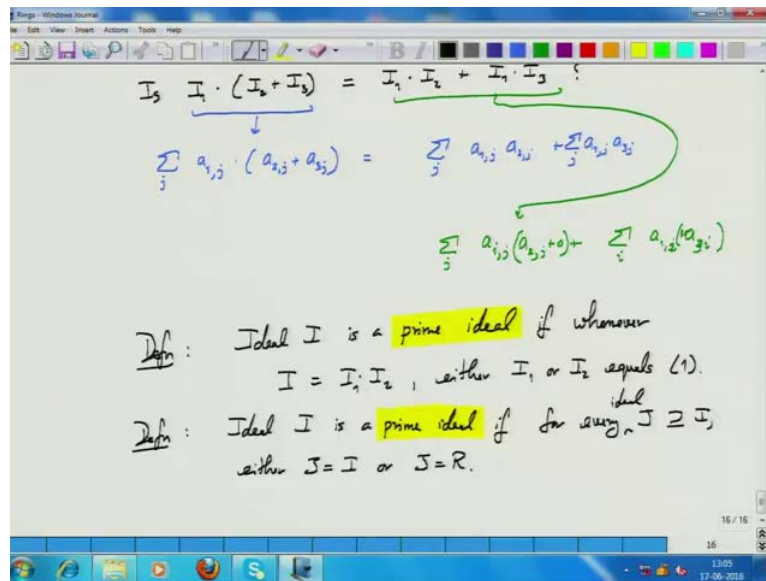 Rings - Windows Journal
File Edit View Insert Actions Tools Help
Is I₁ · (I₂ + I₃) = I₁ · I₂ + I₁ · I₃ ?
∑_j a₁,j · (a₂,j + a₃j) = ∑_j a₁,j a₂,j + ∑_j a₁,j a₃j
∑_j a₁,j (a₂,j + 0) + ∑_i a₁,i (0 + a₃i)
Defn : Ideal I is a prime ideal if whenever
I = I₁ · I₂ , either I₁ or I₂ equals (1).
Defn : Ideal I is a prime ideal if for every ideal J ⊇ I,
either J = I or J = R.
16 / 16
16
13:05
17-06-2016